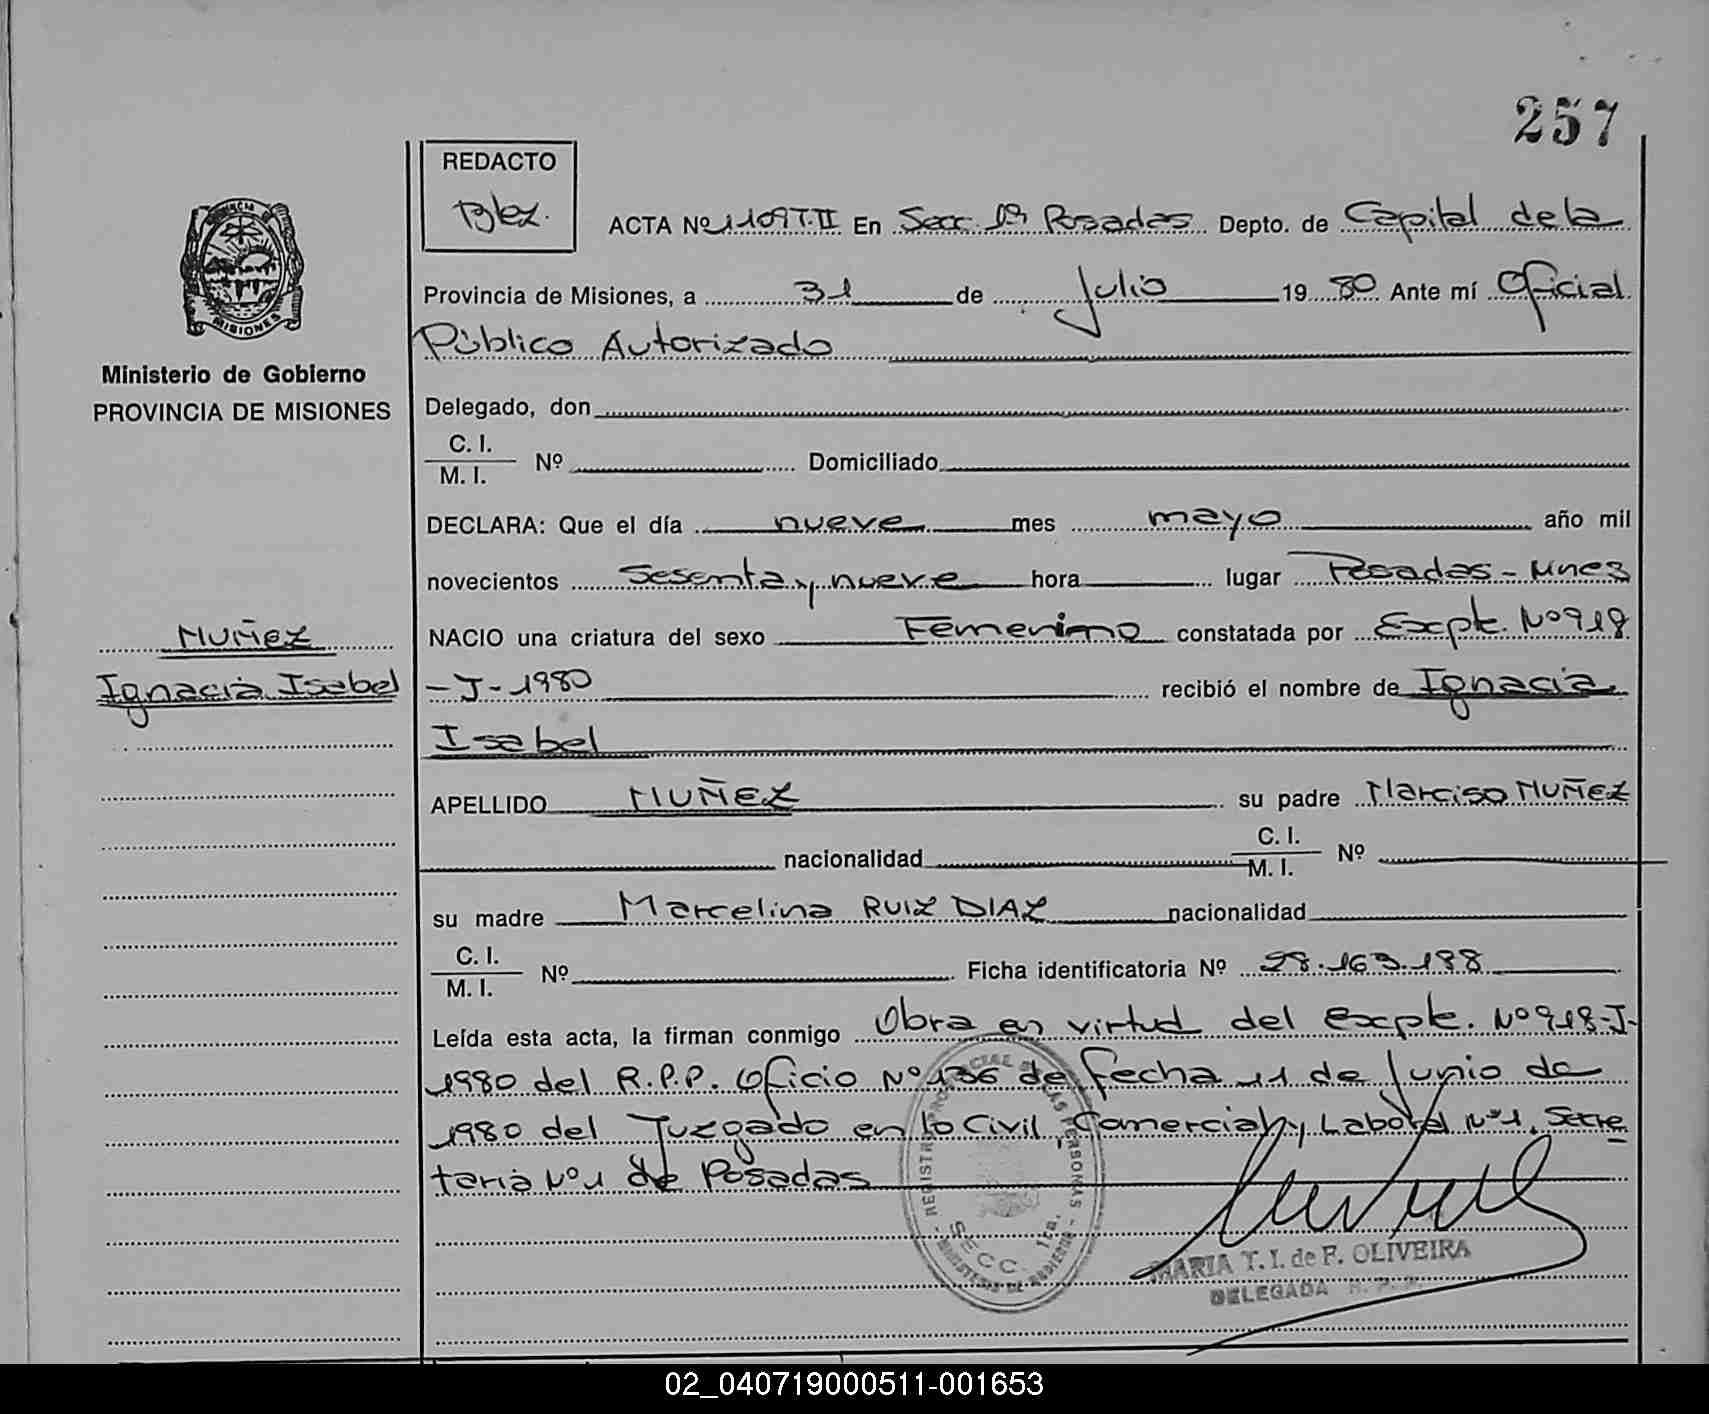 257
REDACTO
Blez.
ACTA Nº 1109 T.II En Secc. 1ª Posadas Depto. de Capital de la
Provincia de Misiones, a 31 de Julio 1980 Ante mí Oficial
Público Autorizado
MISIONES
Ministerio de Gobierno
PROVINCIA DE MISIONES
Delegado, don
C. I.
M. I.
Nº Domiciliado
DECLARA: Que el día nueve mes mayo año mil
novecientos Sesenta y nueve hora lugar Posadas - Mnes
NACIO una criatura del sexo Femenino constatada por Excpte. Nº 918
- J - 1980 recibió el nombre de Ignacia
Isabel
MUÑEZ
Ignacia Isabel
APELLIDO MUÑEZ su padre Narciso MUÑEZ
nacionalidad C. I.
M. I.
Nº
su madre Marcelina RUIZ DIAZ nacionalidad
C. I.
M. I.
Nº Ficha identificatoria Nº 28.163.188
Leída esta acta, la firman conmigo Obra en virtud del Excpte. Nº 918-J-
1980 del R.P.P. Oficio Nº 136 de fecha 11 de Junio de
1980 del Juzgado en lo Civil, Comercial y Laboral Nº 1, Secre
taria Nº 1 de Posadas
SECC. 1ra.
MARIA T. I. de F. OLIVEIRA
DELEGADA R. P. P.
02_040719000511-001653